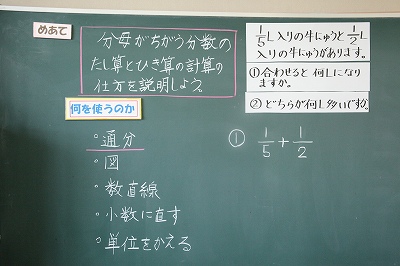 めあて
分母がちがう分数の
たし算とひき算の計算の
仕方を説明しよう。
1/5L入りの牛にゅうと1/2L
入りの牛にゅうがあります。
①合わせると何Lになり
ますか。
②どちらが何L多いですか。
何を使うのか
◦通分
◦図
◦数直線
◦小数に直す
◦単位をかえる
① 1/5+1/2